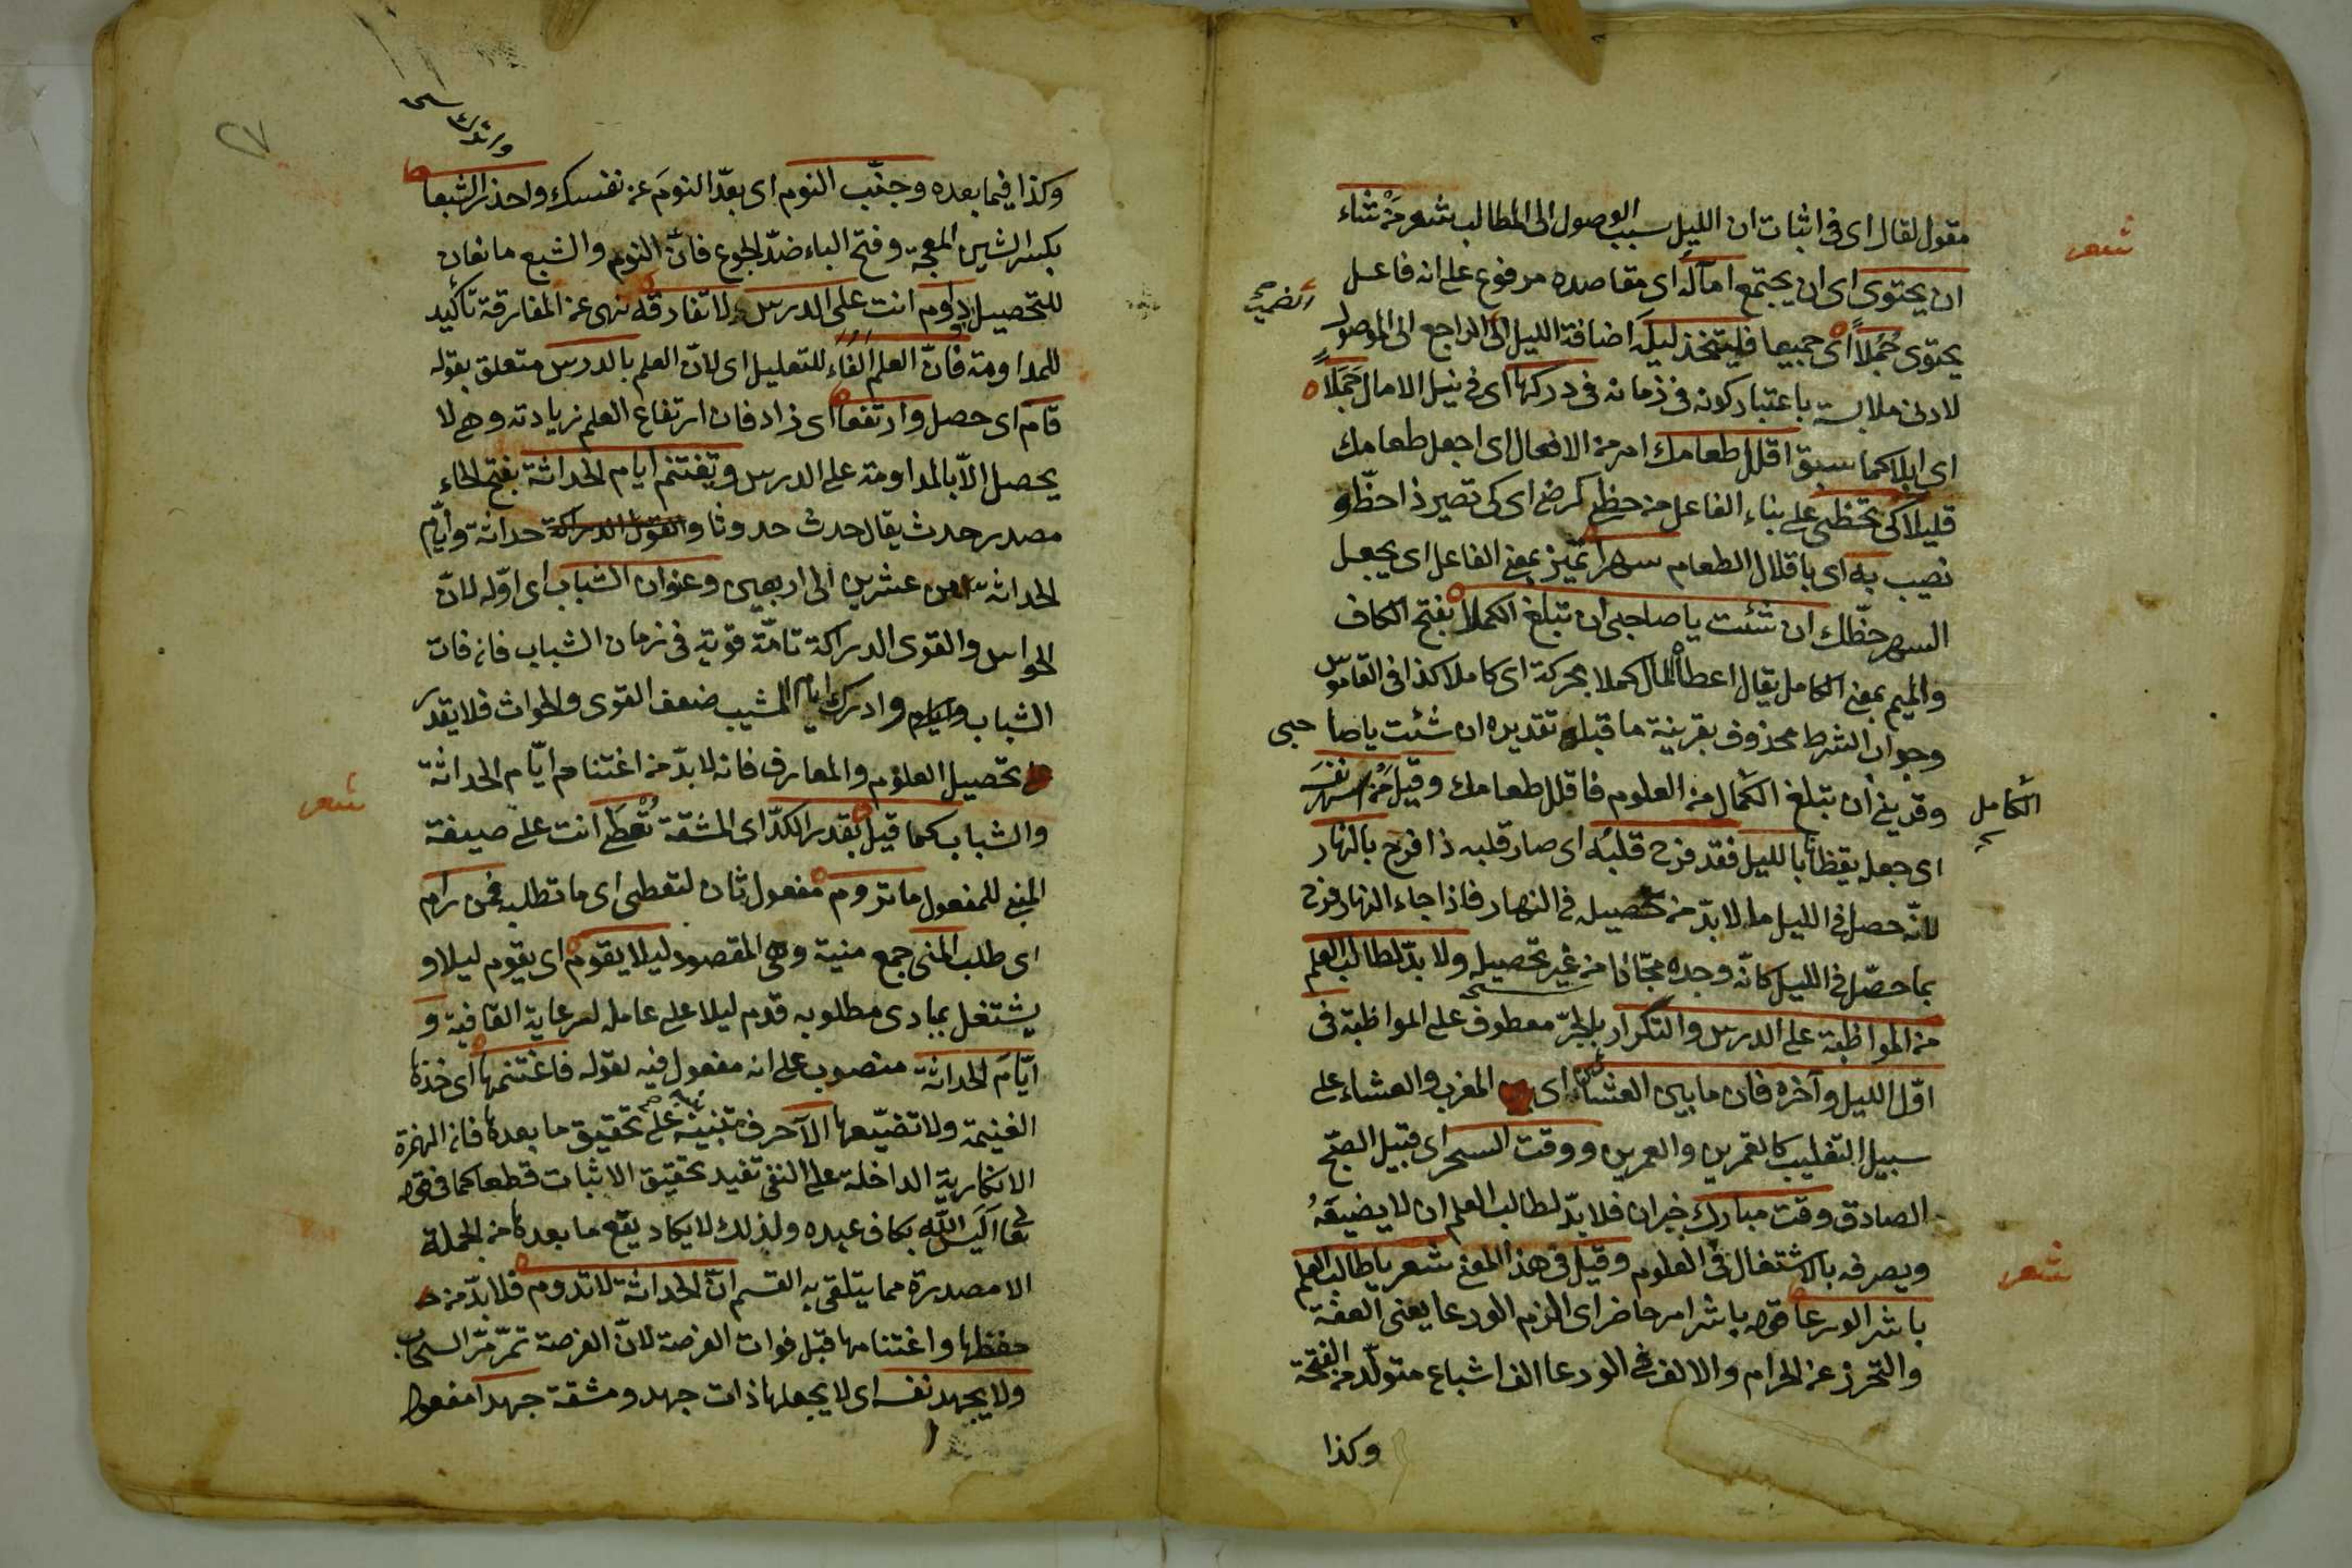 مقول لقال اى فى اثبات ان الليل سبب الوصول الى المطالب شعر مَنْ شاء
شعر
ان يحتوى اى ان يجتمع امآلَه اى مقاصده مرفوع على انه فاعل
يحتوى جُمَلاً اى جميعا فليتخذ ليله اضافة الليل الى الراجع الى الموصول
الضمير
لادنى ملابسة باعتبار كونه فى زمانه فى دركها اى فى نيل الامال جَمَلاً
اى ابلا كما سبق اقلل طعامك امر من الافعال اى اجعل طعامك
قليلا كى تحظى على بناء الفاعل من حظى كرضى اى كى تصير ذا حظّ و
نصيب به اى باقلال الطعام سهرا تميّز بمعنى الفاعل اى يجعل
السهر حظّك ان شئت يا صاحبى ان تبلغ الكملا بفتح الكاف
والميم بمعنى الكامل يقال اعطاه المال كملا محركة اى كاملا كذا فى القاموس
وجواب الشرط محذوف بقرينة ما قبله تقديره ان شئت يا صاحبى
وقدرينى ان تبلغ الكمال من العلوم فاقلل طعامك وقيل مَنْ اسهر نفسَه
الكامل
اى جعله يقظانا بالليل فقد فرح قلبُه اى صار قلبه ذا فرح بالنهار
لانّه حصل فى الليل ما لا بدّ من تحصيله فى النهار فاذا جاء النهار فرح
بما حصّل فى الليل كانّه وجده مجّانا من غير تحصيله ولا بدّ لطالب العلم
من المواظبة على الدرس والتكرار بالجرّ معطوف على المواظبة فى
اوّل الليل وآخره فان ما بين العشائين اى المغرب والعشاء على
سبيل التغليب كالقمرين والعمرين ووقت السحر اى قبيل الصبح
الصادق وقت مبارك خبر ان فلا بدّ لطالب العلم ان لا يضيعَهُ
ويصرفه بالاشتغال فى العلوم وقيل فى هذا المعنى شعر يا طالب العلم
شعر
باشر الورعا قوله باشر امر حاضر اى الزم الورعا يعنى العفّة
والتحرز عن الحرام والالف فى الورعا الف اشباع متولّد من الفتحة
وكذا
٢٧
وكذا فيما بعده وجنّب النوم اى بعّد النومَ عن نفسك واحذر الشبعا
بكسر الشين المعجمة وفتح الباء ضدّ الجوع فانّ النوم والشبع مانعان
للتحصيل داوم انت على الدرس ولا تفارقه نهى عن المفارقة تأكيد
للمداومة فانّ العلم الفاء للتعليل اى لانّ العلم بالدرس متعلق بقوله
قام اى حصل وارتفعا اى زاد فان ارتفاع العلم زيادته وهى لا
يحصل الاّ بالمداومة على الدرس وتغتنم ايام الحداثة بفتح الحاء
مصدر حدث يقال حدث حدوثا والقوى الدراكة حداثة وأيّام
الحداثة من عشرين الى اربعين وعنوان الشباب اى اوّله لانّ
الحواس والقوى الدراكة تامّة قوية فى زمان الشباب فانه فات
الشباب وادرك ايام المشيب ضعف القوى والحواث فلا يقدر
تحصيل العلوم والمعارف فانه لا بدّ من اغتنام ايّام الحداثة
والشباب كما قيل بقدر الكدّ اى المشقة تُعْطَى انت على صيغة
شعر
المبنى للمفعول ما تروم مفعول ثان لتعطى اى ما تطلبه فمن رام
اى طلب المنى جمع منية وهى المقصود ليلا يقوم اى يقوم ليلا و
يشتغل بمبادى مطلوبه قدم ليلا على عامله لرعاية القافية و
ايّامَ الحداثة منصوب على انه مفعول فيه لقوله فاغتنمها اى خذها
الغنيمة ولا تضيّعها الا حرف تنبيه على تحقيق ما بعدها فان الهمزة
الانكارية الداخلة على النفى تفيد تحقيق الاثبات قطعا كما فى قوله
تعا أَلَيس اللّه بكاف عبده ولذلك لا يكاد يقع ما بعدها من الجملة
الا مصدرة مما يتلقى به القسم انّ الحداثة لا تدوم فلا بدّ من
حفظها واغتنامها قبل فوات الفرصة لانّ الفرصة تمرّ مرّ السحاب
ولا يجهد نفسه اى لا يجعلها ذات جهد ومشقة جهدا مفعول